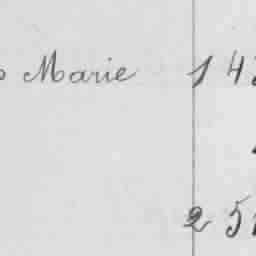 Marie 1 4
2 5